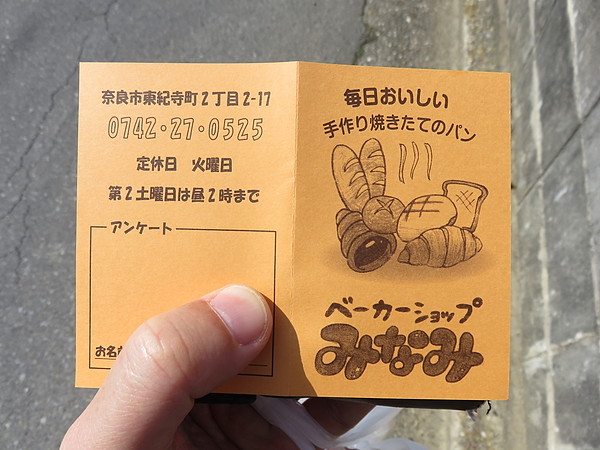 奈良市東紀寺町2丁目2-17
0742・27・0525
定休日 火曜日
第2土曜日は昼2時まで
アンケート
お名
毎日おいしい
手作り焼きたてのパン
ベーカーショップ
みなみ